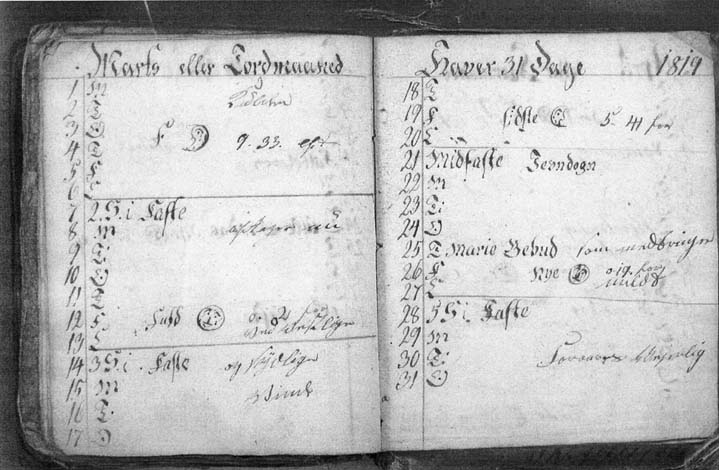 Marts eller Tordmaaned
1 M
2 T
3 O F 9. 33. eft
4 T
5 F
6 L
7 2. S. i Faste
8 M
9 T.
10 O
11 T
12 F. Fuld
13 L
14 3 S. i. Faste og Sydlige
15 M Vinde
16 T.
17 O
Haver 31 Dage 1819
18 T.
19 F sidste 5. 41 for
20 L
21 Midfaste Jevndøgn
22 M
23 T.
24 O
25 T. Marie Bebud som medbringer
26 F Nye 0. 19. for
27 L mildt
28 5 S. i Faste
29 M
30 T. Foraars Veyerlig
31 O